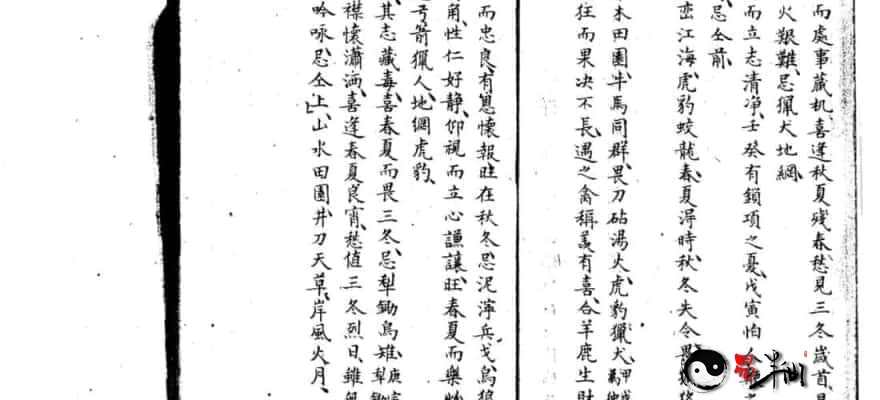 而處事藏机喜逢秋夏殘春愁見三冬歲首
火艱難忌猟犬地網
而立志清净壬癸有鎖項之憂戊寅怕
忌仝前
江海虎豹蛟龍春夏淂時秋冬失令畏
木田園牛馬同群畏刀砧湯火虎豹猟犬
狂而果决不長遇之禽稱羙有喜合羊鹿生財
而忠良有恩懷報旺在秋冬忌泥濘兵戈烏狼
角性仁好静仰視而立心謙讓旺春夏而樂
弓箭猟人地網虎豹
其志藏毒喜春夏而畏三冬忌犁鋤烏雉
襟懷瀟洒喜逢春夏良宵愁值三冬烈日雖
吟咏忌仝上山水田園井刀天草岸風火月
易半仙